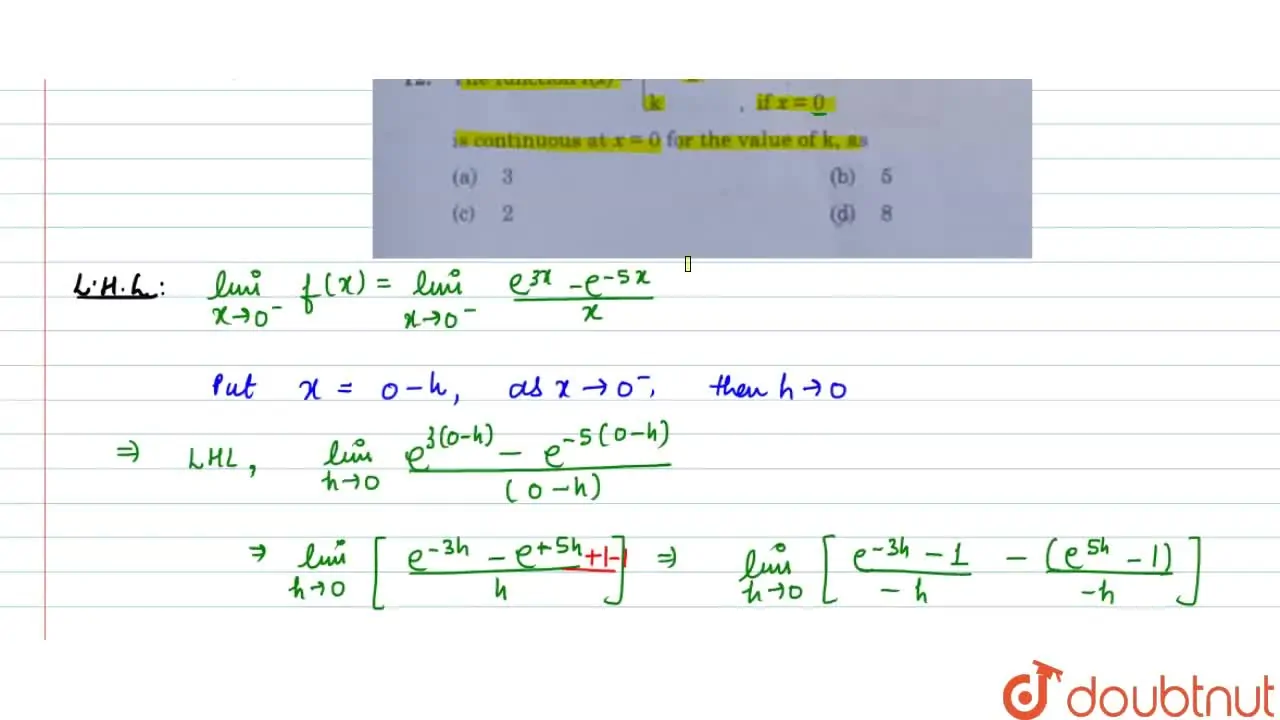 12. The function f(x) =
k , if x = 0
is continuous at x = 0 for the value of k, as
(a) 3 (b) 5
(c) 2 (d) 8
L.H.L: lim x→0⁻ f(x) = lim x→0⁻ (e^3x - e^-5x)/x
Put x = 0-h, as x→0⁻, then h→0
⇒ LHL, lim h→0 (e^3(0-h) - e^-5(0-h))/(0-h)
⇒ lim h→0 [(e^-3h - e^+5h +1-1)/h] ⇒ lim h→0 [(e^-3h - 1)/-h - (e^5h - 1)/-h]
doubtnut